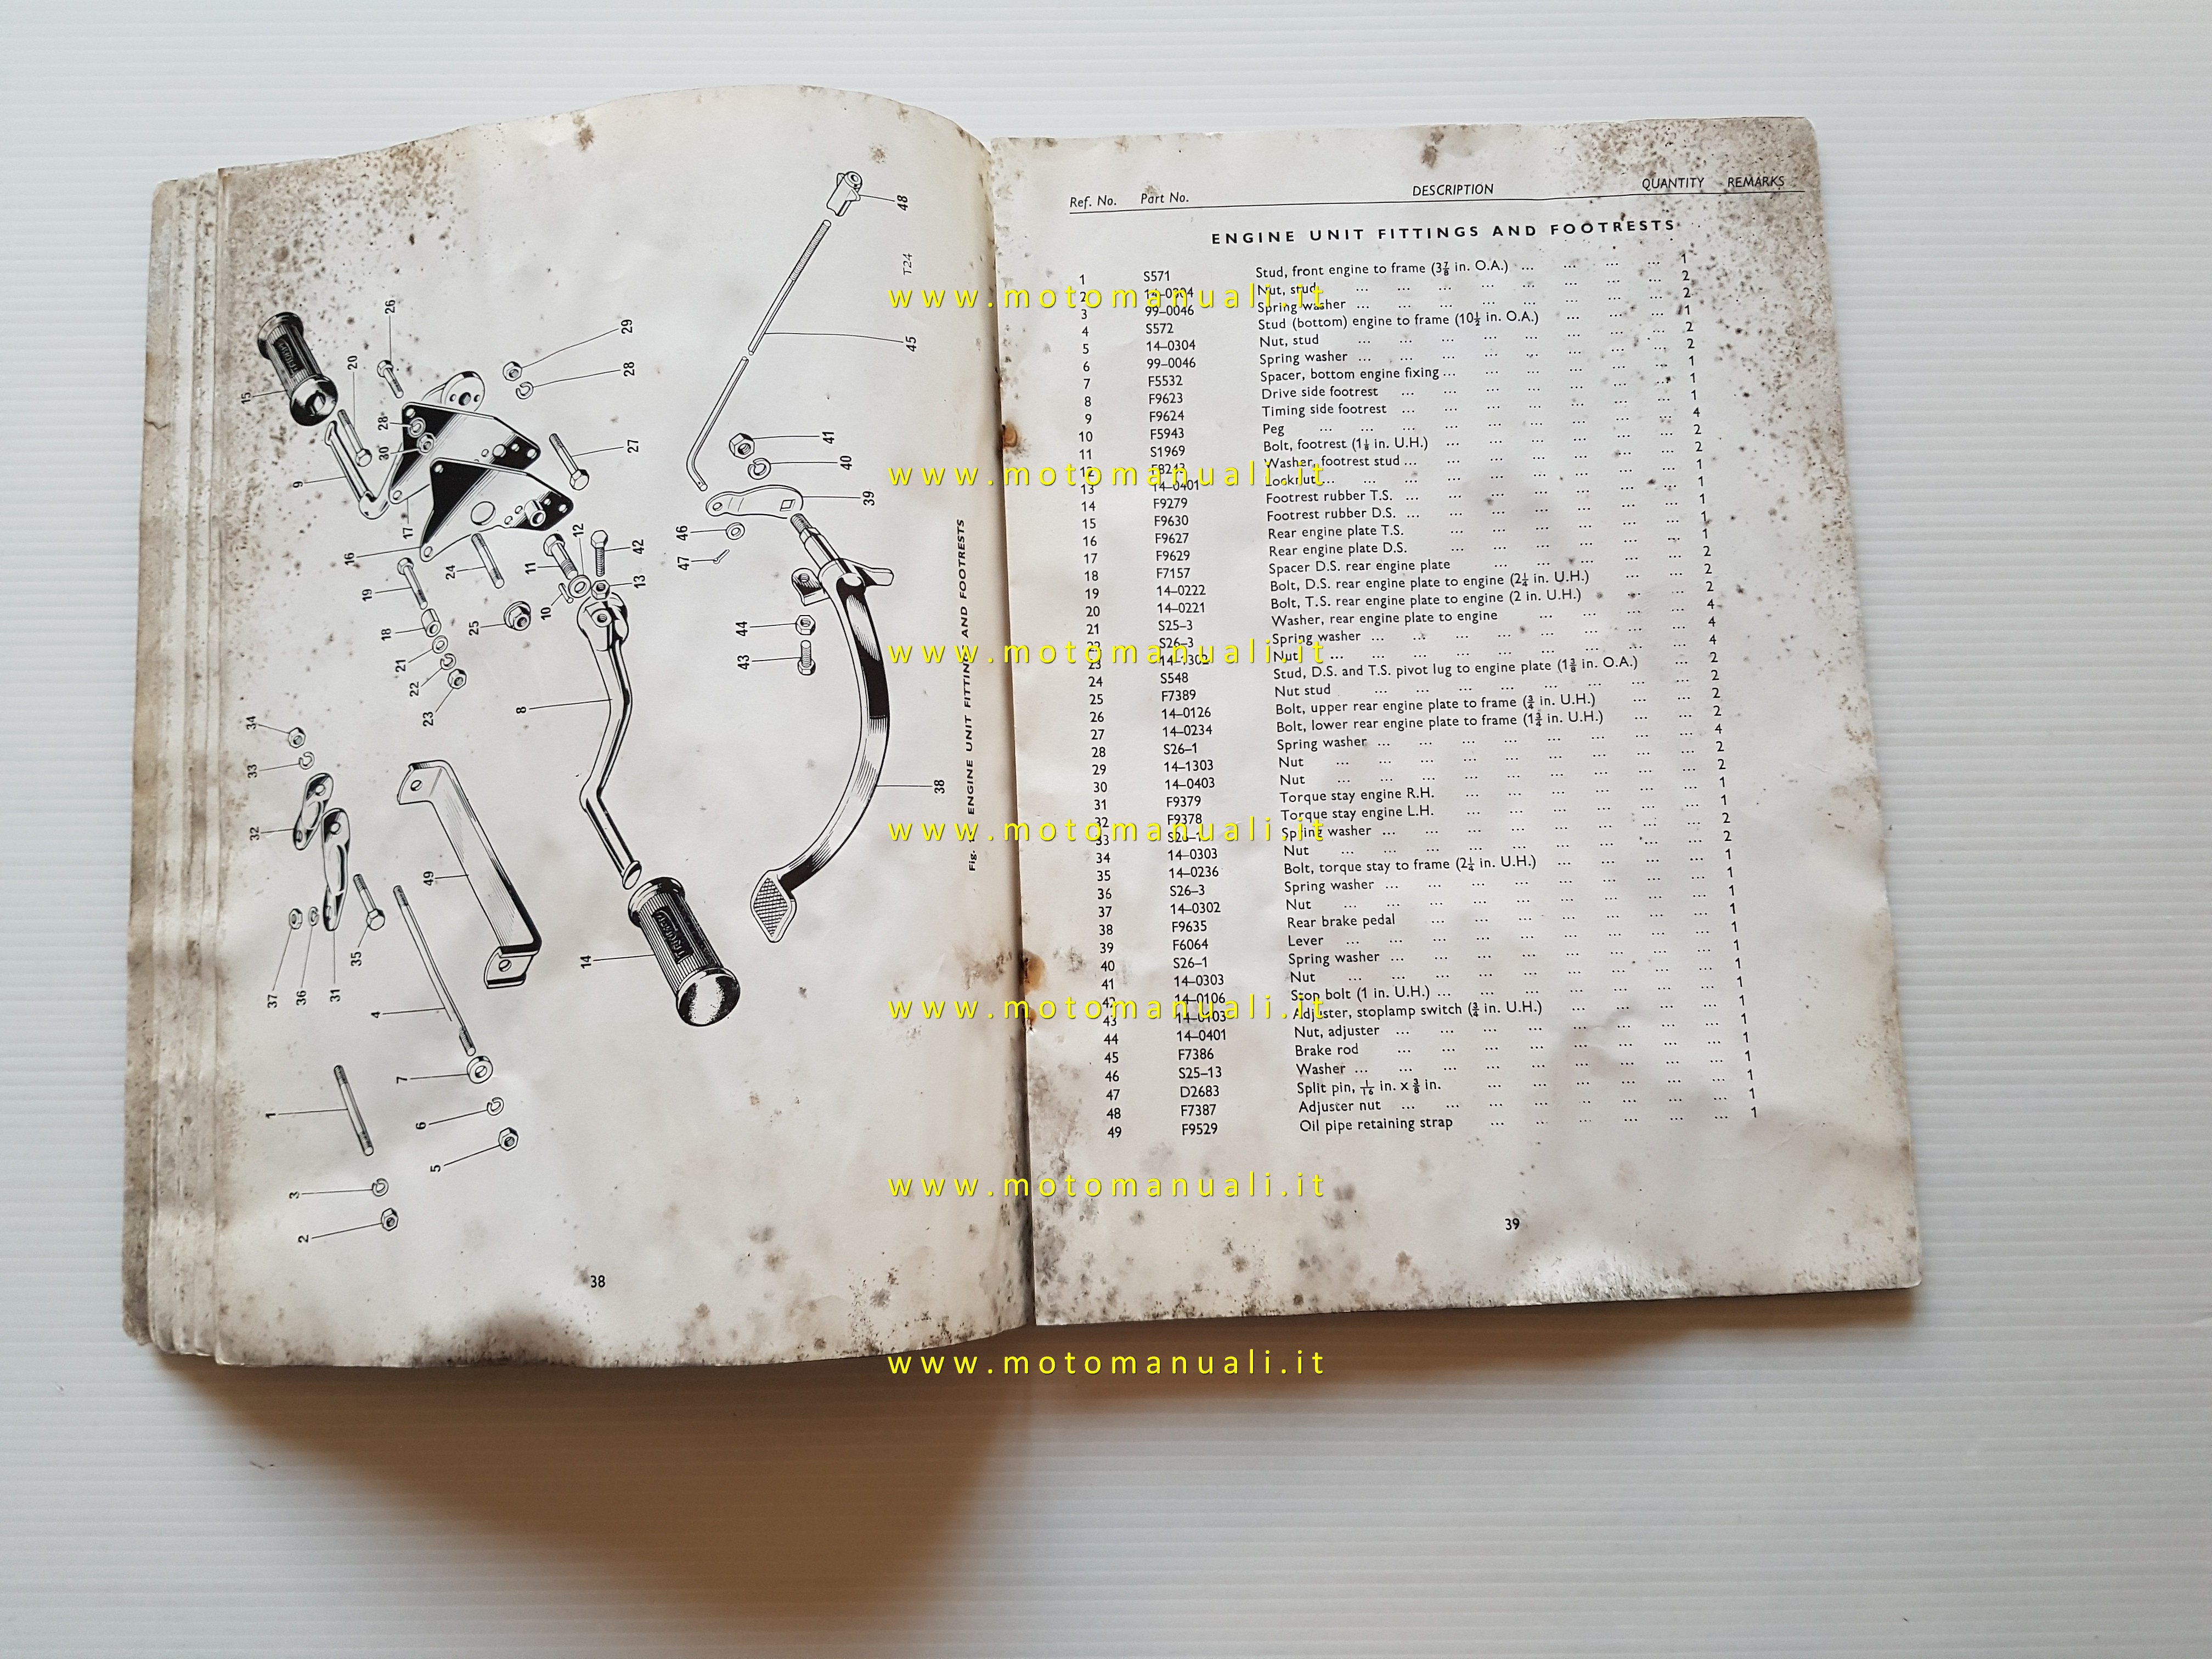 T24
Fig. ENGINE UNIT FITTINGS AND FOOTRESTS
38
Ref. No. Part No. DESCRIPTION QUANTITY REMARKS
ENGINE UNIT FITTINGS AND FOOTRESTS
1 S571 Stud, front engine to frame (3⅞ in. O.A.) ... ... ... ... 1
2 14–0304 Nut, stud ... ... ... ... ... ... ... ... 2
3 99–0046 Spring washer ... ... ... ... ... ... ... 2
4 S572 Stud (bottom) engine to frame (10½ in. O.A.) ... ... ... 1
5 14–0304 Nut, stud ... ... ... ... ... ... ... 2
6 99–0046 Spring washer ... ... ... ... ... ... ... 2
7 F5532 Spacer, bottom engine fixing ... ... ... ... ... ... 1
8 F9623 Drive side footrest ... ... ... ... ... ... 1
9 F9624 Timing side footrest ... ... ... ... ... ... 1
10 F5943 Peg ... ... ... ... ... ... ... ... 4
11 S1969 Bolt, footrest (1⅛ in. U.H.) ... ... ... ... ... ... 2
12 F8243 Washer, footrest stud ... ... ... ... ... ... ... 2
13 14–0401 Locknut ... ... ... ... ... ... ... ... 1
14 F9279 Footrest rubber T.S. ... ... ... ... ... ... ... 1
15 F9630 Footrest rubber D.S. ... ... ... ... ... ... ... 1
16 F9627 Rear engine plate T.S. ... ... ... ... ... ... 1
17 F9629 Rear engine plate D.S. ... ... ... ... ... ... 1
18 F7157 Spacer D.S. rear engine plate ... ... ... ... ... 2
19 14–0222 Bolt, D.S. rear engine plate to engine (2¼ in. U.H.) ... ... 2
20 14–0221 Bolt, T.S. rear engine plate to engine (2 in. U.H.) ... ... 2
21 S25–3 Washer, rear engine plate to engine ... ... ... ... 4
22 S26–3 Spring washer ... ... ... ... ... ... ... 4
23 14–1302 Nut ... ... ... ... ... ... ... ... 4
24 S548 Stud, D.S. and T.S. pivot lug to engine plate (1⅜ in. O.A.) ... 2
25 F7389 Nut stud ... ... ... ... ... ... ... ... 2
26 14–0126 Bolt, upper rear engine plate to frame (¾ in. U.H.) ... ... 2
27 14–0234 Bolt, lower rear engine plate to frame (1¾ in. U.H.) ... ... 2
28 S26–1 Spring washer ... ... ... ... ... ... ... ... 4
29 14–1303 Nut ... ... ... ... ... ... ... ... 2
30 14–0403 Nut ... ... ... ... ... ... ... ... 2
31 F9379 Torque stay engine R.H. ... ... ... ... ... ... 1
32 F9378 Torque stay engine L.H. ... ... ... ... ... ... 1
33 S26–1 Spring washer ... ... ... ... ... ... ... ... 2
34 14–0303 Nut ... ... ... ... ... ... ... ... 2
35 14–0236 Bolt, torque stay to frame (2¼ in. U.H.) ... ... ... ... 1
36 S26–3 Spring washer ... ... ... ... ... ... ... ... 1
37 14–0302 Nut ... ... ... ... ... ... ... ... 1
38 F9635 Rear brake pedal ... ... ... ... ... ... ... 1
39 F6064 Lever ... ... ... ... ... ... ... ... 1
40 S26–1 Spring washer ... ... ... ... ... ... ... ... 1
41 14–0303 Nut ... ... ... ... ... ... ... ... 1
42 14–0106 Stop bolt (1 in. U.H.) ... ... ... ... ... ... ... 1
43 14–0103 Adjuster, stoplamp switch (¾ in. U.H.) ... ... ... ... 1
44 14–0401 Nut, adjuster ... ... ... ... ... ... ... 1
45 F7386 Brake rod ... ... ... ... ... ... ... ... 1
46 S25–13 Washer ... ... ... ... ... ... ... ... 1
47 D2683 Split pin, 1/16 in. x ⅜ in. ... ... ... ... ... ... 1
48 F7387 Adjuster nut ... ... ... ... ... ... ... ... 1
49 F9529 Oil pipe retaining strap ... ... ... ... ... ... 1
39
www.motomanuali.it
www.motomanuali.it
www.motomanuali.it
www.motomanuali.it
www.motomanuali.it
www.motomanuali.it
www.motomanuali.it